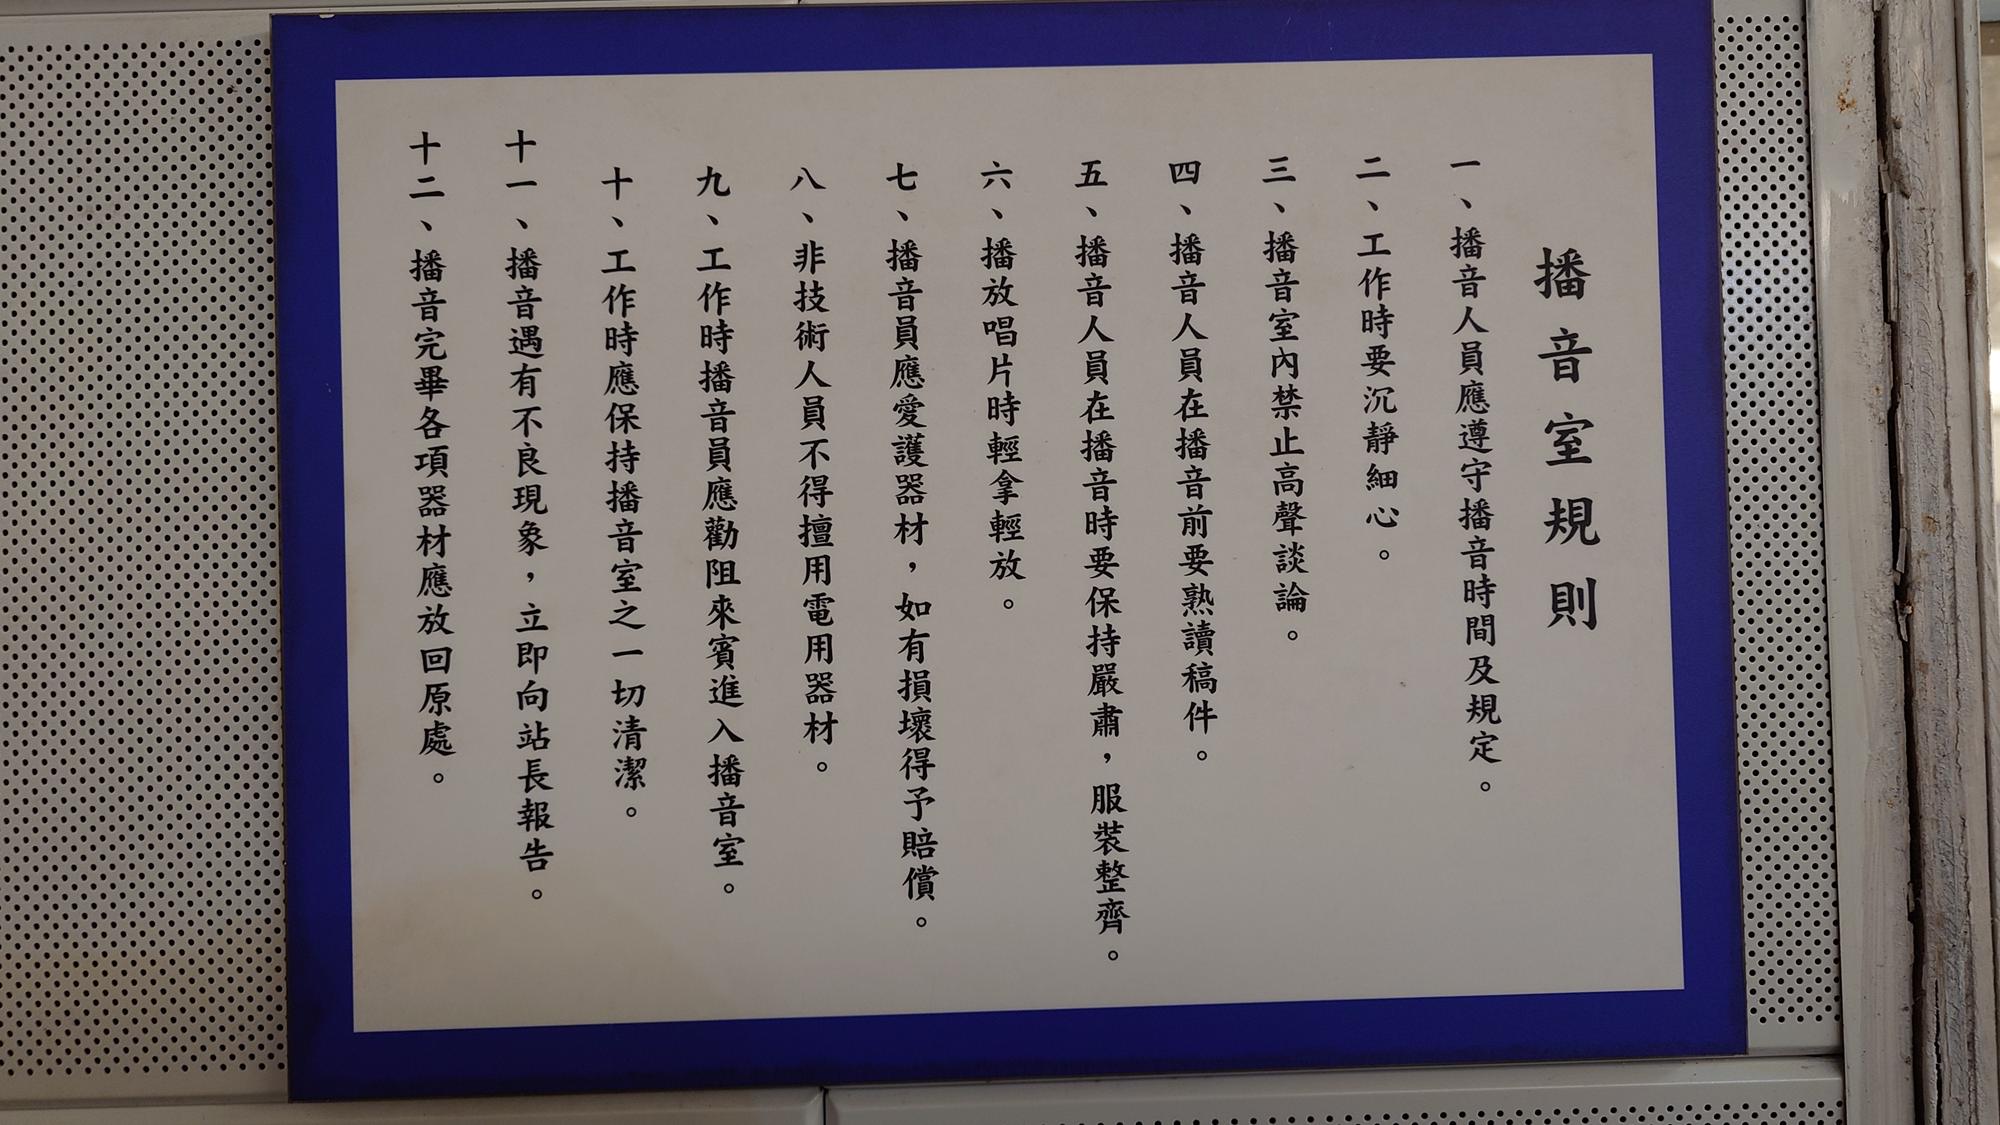 播音室規則
一、播音人員應遵守播音時間及規定。
二、工作時要沉靜細心。
三、播音室內禁止高聲談論。
四、播音人員在播音前要熟讀稿件。
五、播音人員在播音時要保持嚴肅，服裝整齊。
六、播放唱片時輕拿輕放。
七、播音員應愛護器材，如有損壞得予賠償。
八、非技術人員不得擅用電用器材。
九、工作時播音員應勸阻來賓進入播音室。
十、工作時應保持播音室之一切清潔。
十一、播音遇有不良現象，立即向站長報告。
十二、播音完畢各項器材應放回原處。